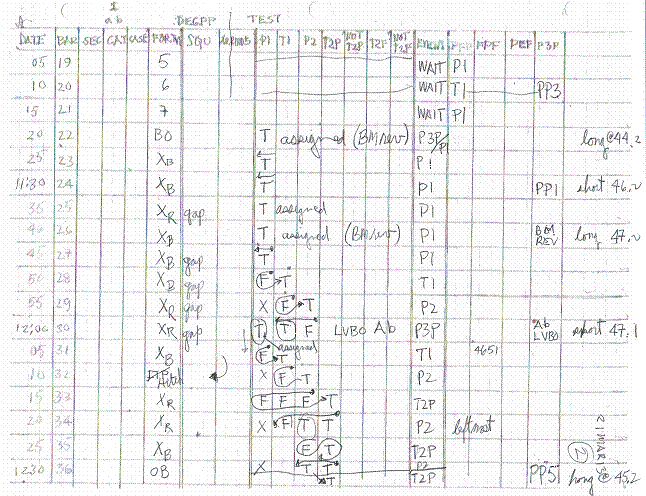 1
ab DEGPP TEST
DATE BAR SEC CAT CASE FORM SQU P1 T1 P2 T2P NOT T2P T2F NOT PPF P3P
05 19 5 WAIT P1
10 20 6 WAIT T1 PP3
15 21 7 WAIT P1
20 22 BO T assigned (BMrev) P3P/P1 long @ 44.2
25 23 XB T P1
11:30 24 XB T P1 PP1 short 46.2
35 25 XR gap T assigned P1
40 26 XB T assigned (BMrev) P1 BM REV long 47.2
45 27 XB gap T P1
50 28 XB gap F T T1
55 29 XR gap X F T P2
12:00 30 XR gap T T F LVBO Ab P3P Ab LVBO short 47.1
assigned
05 31 XB F T T1 4651
10 32 X F T P2
15 33 XR F F F T T2P
20 34 XR X F T T P2 leftmost
25 35 XB F T T2P 2
1230 36 OB X T T P2 PP5 long @ 45.2
T T2P